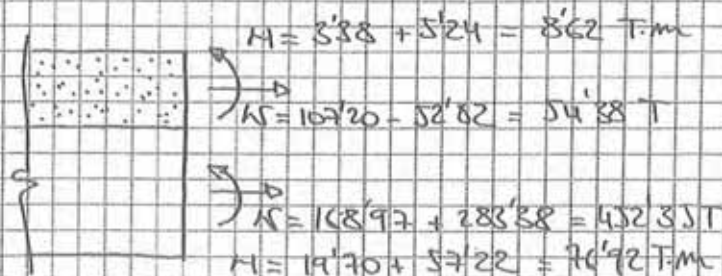 M = 3'38 + 5'24 = 8'62 T.m
N = 107'20 - 52'82 = 54'38 T
N = 168'97 + 283'38 = 452'35 T
M = 19'70 + 57'22 = 76'92 T.m